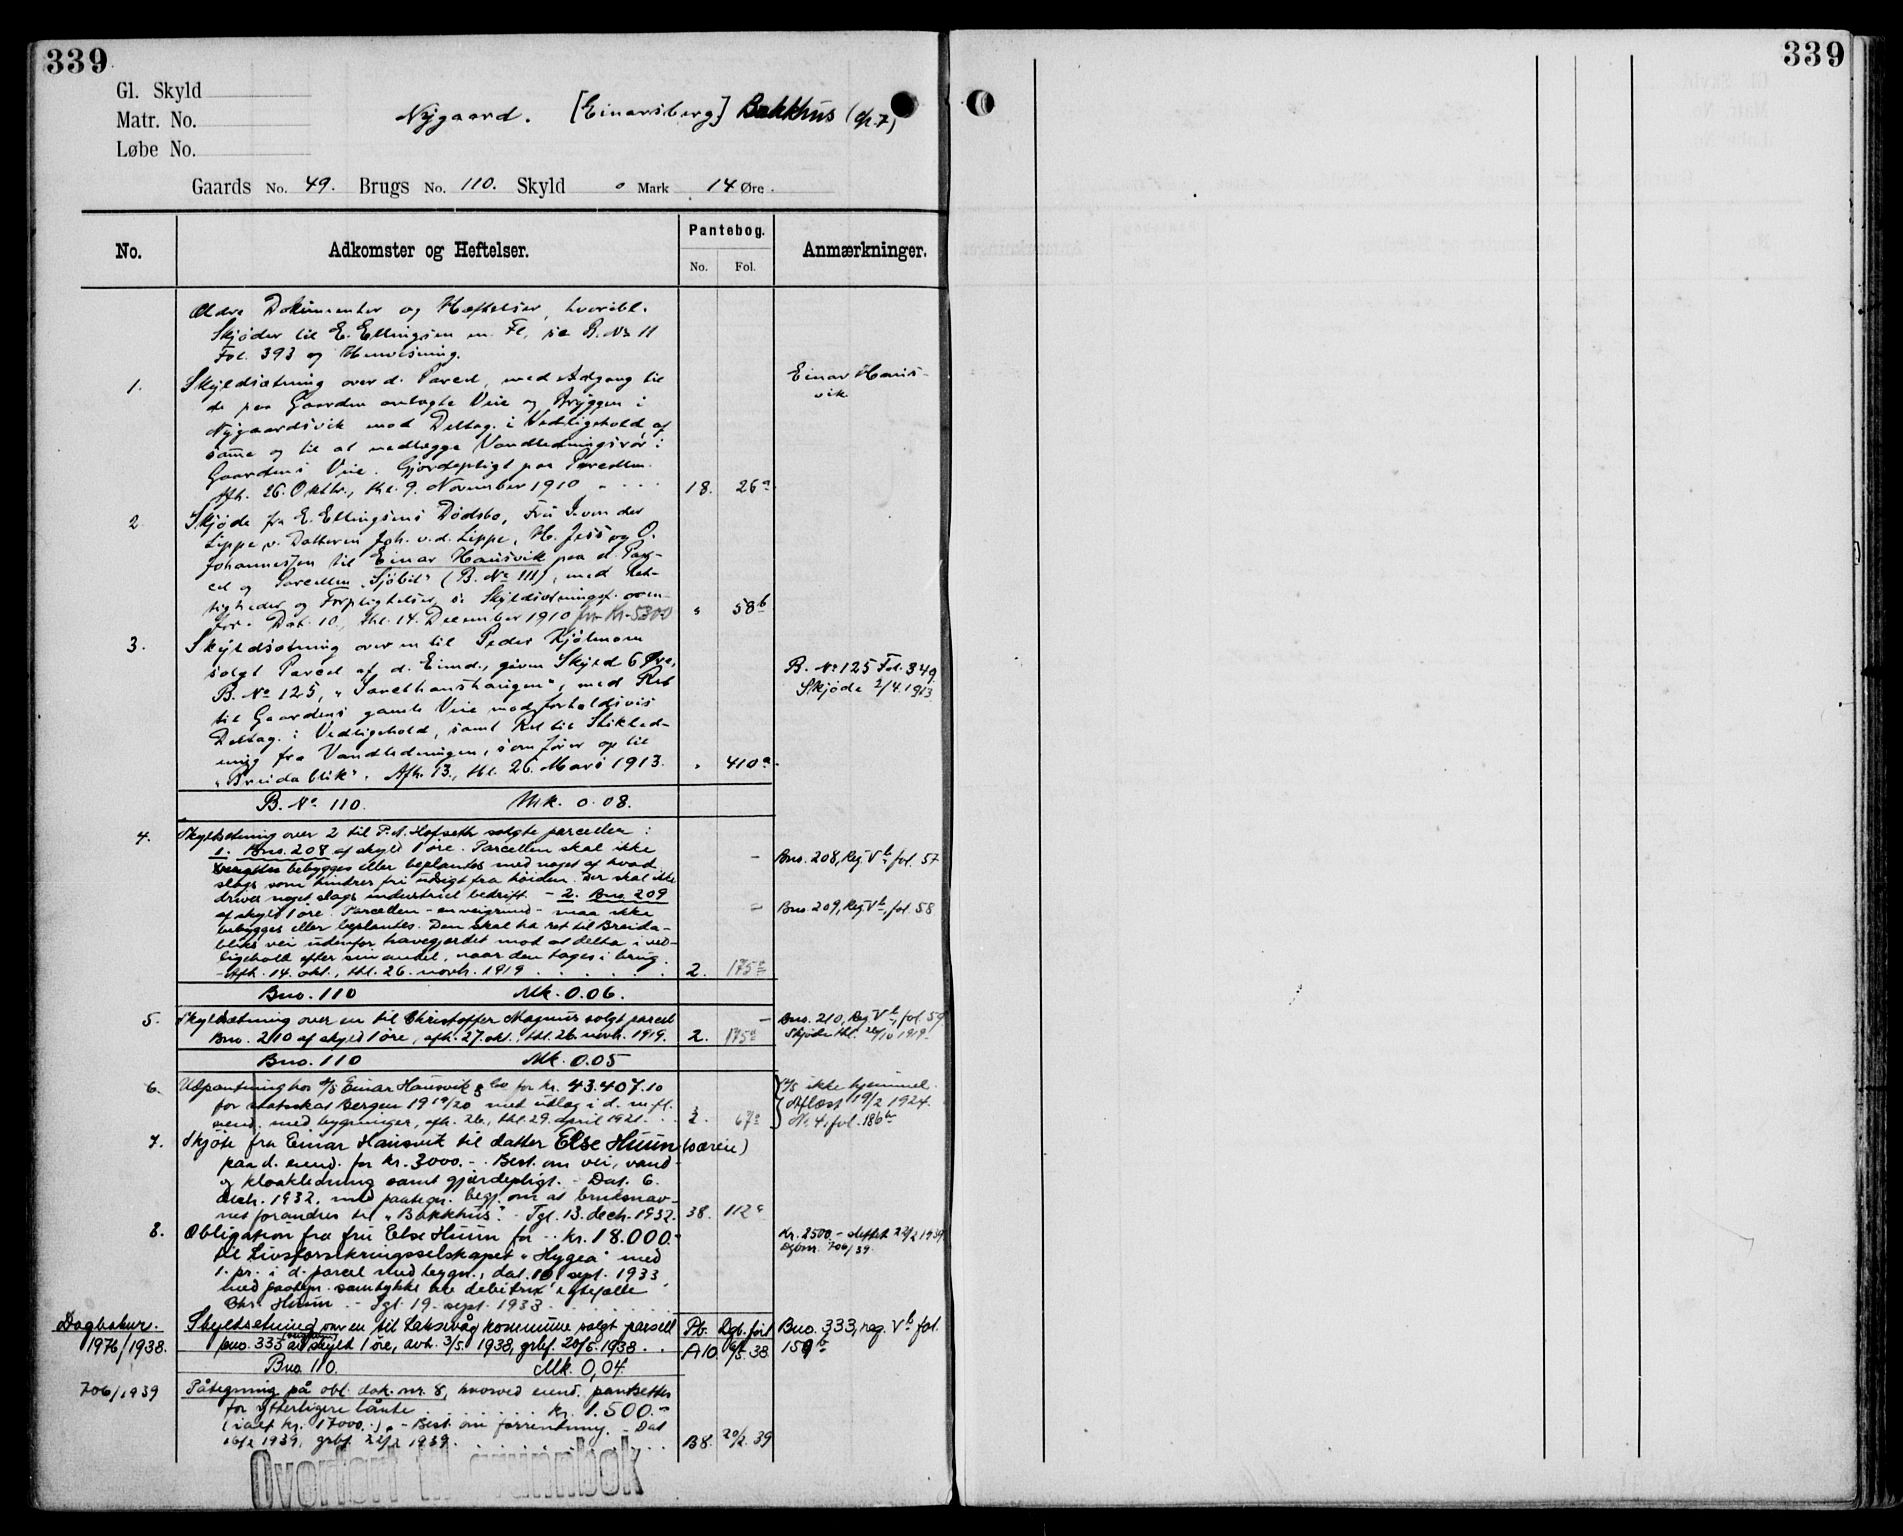 339
339
Gl. Skyld
Matr. No.
Løbe No.
Nygaard. [Einarsberg] Bakkhus (dp. 7)
Gaards No. 49. Brugs No. 110. Skyld 0 Mark 14 Øre.
No.
Adkomster og Heftelser.
Pantebog.
No. Fol.
Anmærkninger.
Ældre Dokumenter og Hæftelser, hvoribl.
Skjøder til E. Ellingsen m. Fl, se B. No 11
Fol. 393 og Henvisning.
1. Skyldsætning over d. Parcel, med Adgang til
de paa Gaarden anlagte Veie og Bryggen i
Nygaardsvik mod Deltag. i Vedligehold af
samme og til at nedlægge Vandledningsrør i
Gaardens Veie. Gjerdepligt paa Parcellen.
Afh. 26. Oktbr., thl. 9. November 1910 18. 26a
Einar Hausvik
2. Skjøde fra E. Ellingsens Dødsbo, Fru I. von der
Lippe v. Datteren Joh. v. d. Lippe, H. Jess og O.
Johannessen til Einar Hausvik paa d. Parcel
og Parcellen "Sjöbil" (B. No 111), med Rettigheder
og Forpligtelser, se Skyldsætningsf. ovenfor.
Dat. 10, thl. 14. December 1910 for Kr. 5300 " 58b
3. Skyldsætning over en til Peder Kjölmoen
solgt Parcel af d. Eiend., given Skyld 6 Øre,
B. No 125, , med Ret
til Gaardens gamle Veie mod forholdsvis
Deltag. i Vedligehold, samt Ret til Stikledning
fra Vandledningen, som fører op til
"Breidablik". Afh. 13., thl. 26. Mars 1913. " 410a
B. No 125 Fol. 349.
Skjøde 2/4. 1913
B. No 110. Mk. 0.08.
4. Skyldsetning over 2 til P. A. Hofseth solgte parceller:
1. Bno. 208 af skyld 1 øre. Parcellen skal ikke
bebygges eller beplantes med noget af hvad
slags som hindrer fri utsigt fra høiden. Der skal ikke
drives noget slags industriel bedrift. - 2. Bno 209
af skyld 1 øre. Parcellen - en veigrund - maa ikke
bebygges eller beplantes. Den skal ha ret til Breidabliks
vei utenfor havegjerdet mot at delta i vedligehold
efter sin andel, naar den tages i brug.
- Afh. 14. okt., thl. 26. novb. 1919 2. 175
Bno. 208, Reg. Vb, fol. 57
Bno. 209, Reg. Vb, fol. 58
Bno. 110 Mk. 0.06.
5. Skyldsætning over en til Christoffer Magnus solgt parcel
Bno. 210 af skyld 1 øre, afh. 27. okt., thl. 26. novb. 1919. 2. 175a
Bno. 210, Reg. Vb, fol. 59
Skjøde thl. 26/10 1919.
Bno. 110 Mk. 0.05
6. Udpantning hos A/S Einar Hausvik & Co for kr. 43.407.10
for statsskat Bergen 1919/20 med utlæg i d. m. fl.
eiend. med bygninger, afh. 26., thl. 29. april 1921. 2. 67a
A/S ikke hjemmel.
Aflæst 19/2 1924.
N. 4, fol. 186b
7. Skjøte fra Einar Hausvik til datter Else Huun (særeie)
paa d. eiend. for kr. 3000.- . Best. om vei, vand
og kloakledning samt gjerdepligt. - Dat. 6.
decb. 1932, med paategn. begj. om at bruksnavnet
forandres til "Bakkhus". - Tgl. 13. decb. 1932. 38. 112a
8. Obligation fra fru Else Huun for .. kr. 18.000.-
til Livsforsikringsselskapet "Hygea" med
1. pr. i d. parcel med bygn., dat. 10. sept. 1933,
med paategn. samtykke av debitrix' ektefælle
Chr. Huun. - Tgl. 19. sept. 1933
Kr. 2500.- slettet 22/2 1939
Dgbnr. 706/39.
Dagboknr.
1976/1938.
Skyldsetning over en til Laksevåg kommune solgt parsell
bno. 333 av skyld 1 øre, avh. 3/5. 1938, grbf. 20/5. 1938.
Pb. Dgb. ført
A10. 6/5. 38.
Bno. 333, reg. Vb fol.
159b
Bno. 110. Mk. 0,04.
706/1939
Påtegning på obl. dok. nr. 8, hvorved eiend. pantsettes
for ytterligere lånte kr. 1.500.-
(ialt kr. 17000.-). - Best. om forrentning. - Dat
16/2 1939, grbf. 22/2 1939. B8. 20/2. 39
Overført til grunnbok